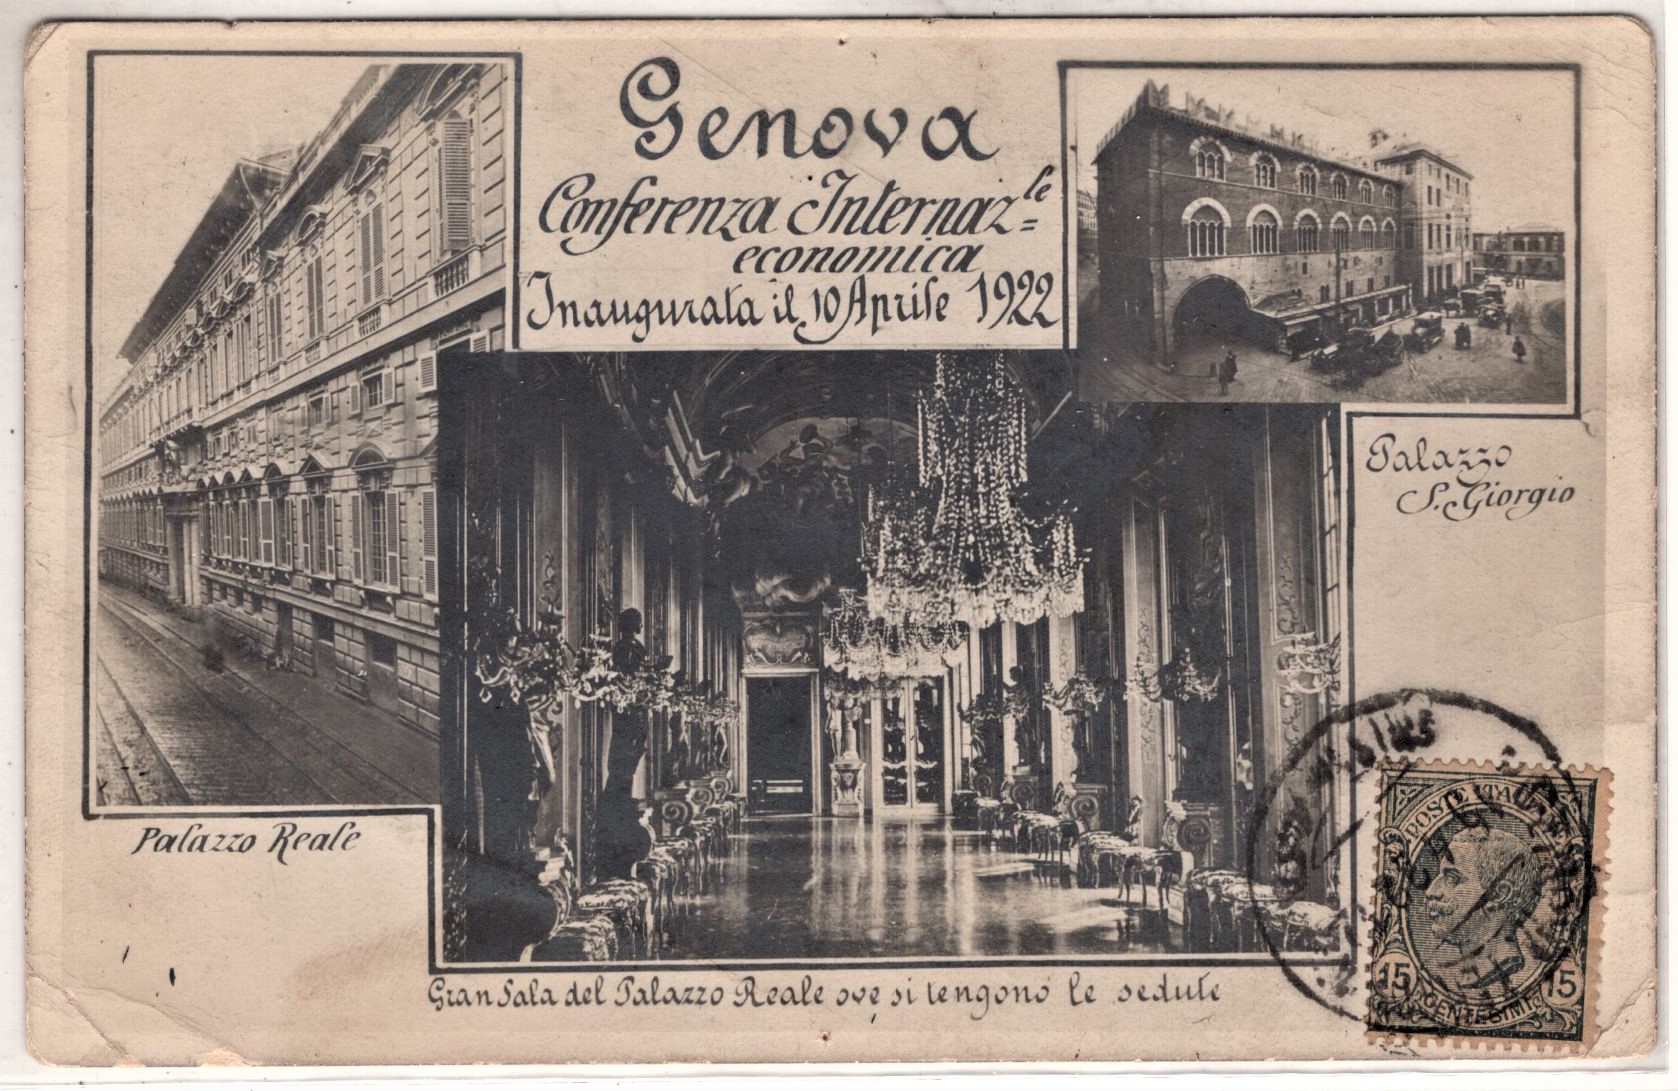 Genova
Conferenza Internaz=le
economica
Inaugurata il 10 Aprile 1922
Palazzo
S. Giorgio
Palazzo Reale
Gran Sala del Palazzo Reale ove si tengono le sedute
POSTE ITALIANE
15 15
CENTESIMI